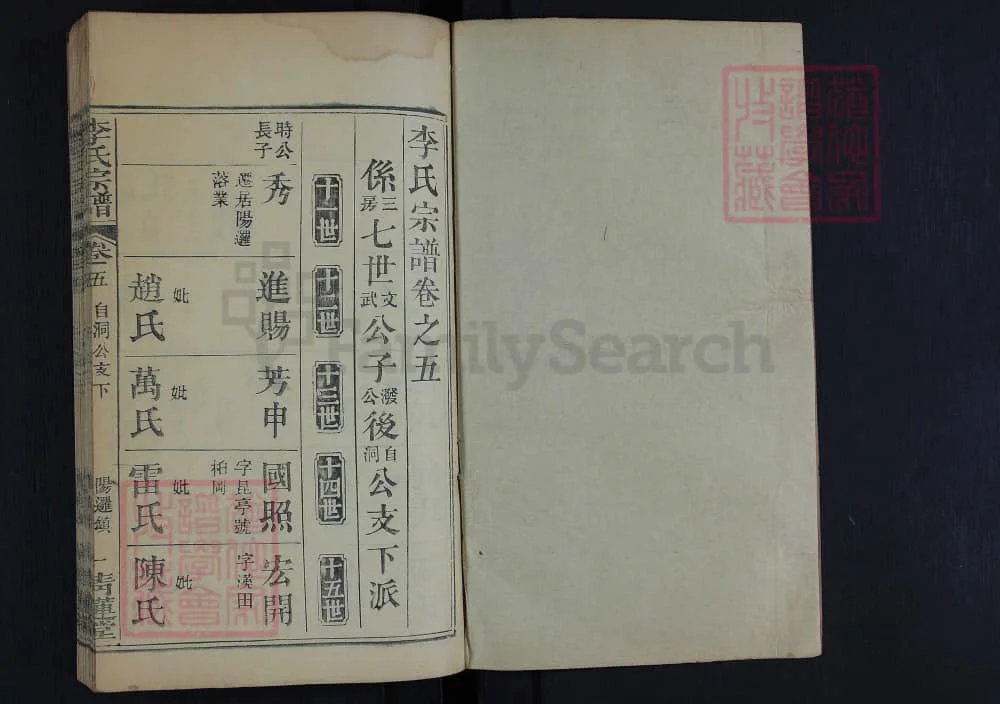 李氏宗譜卷之五
係三房七世文武公子潑公後自洞公支下派
十一世
十二世
十三世
十四世
十五世
時公長子
秀
遷居陽邏落業
進賜
妣
趙氏
芳申
妣
萬氏
國照
字昆亭號柏岡
妣
雷氏
宏開
字漢田
妣
陳氏
李氏宗譜
卷五
自洞公支下
陽邏鎮
一
青蓮堂
FamilySearch